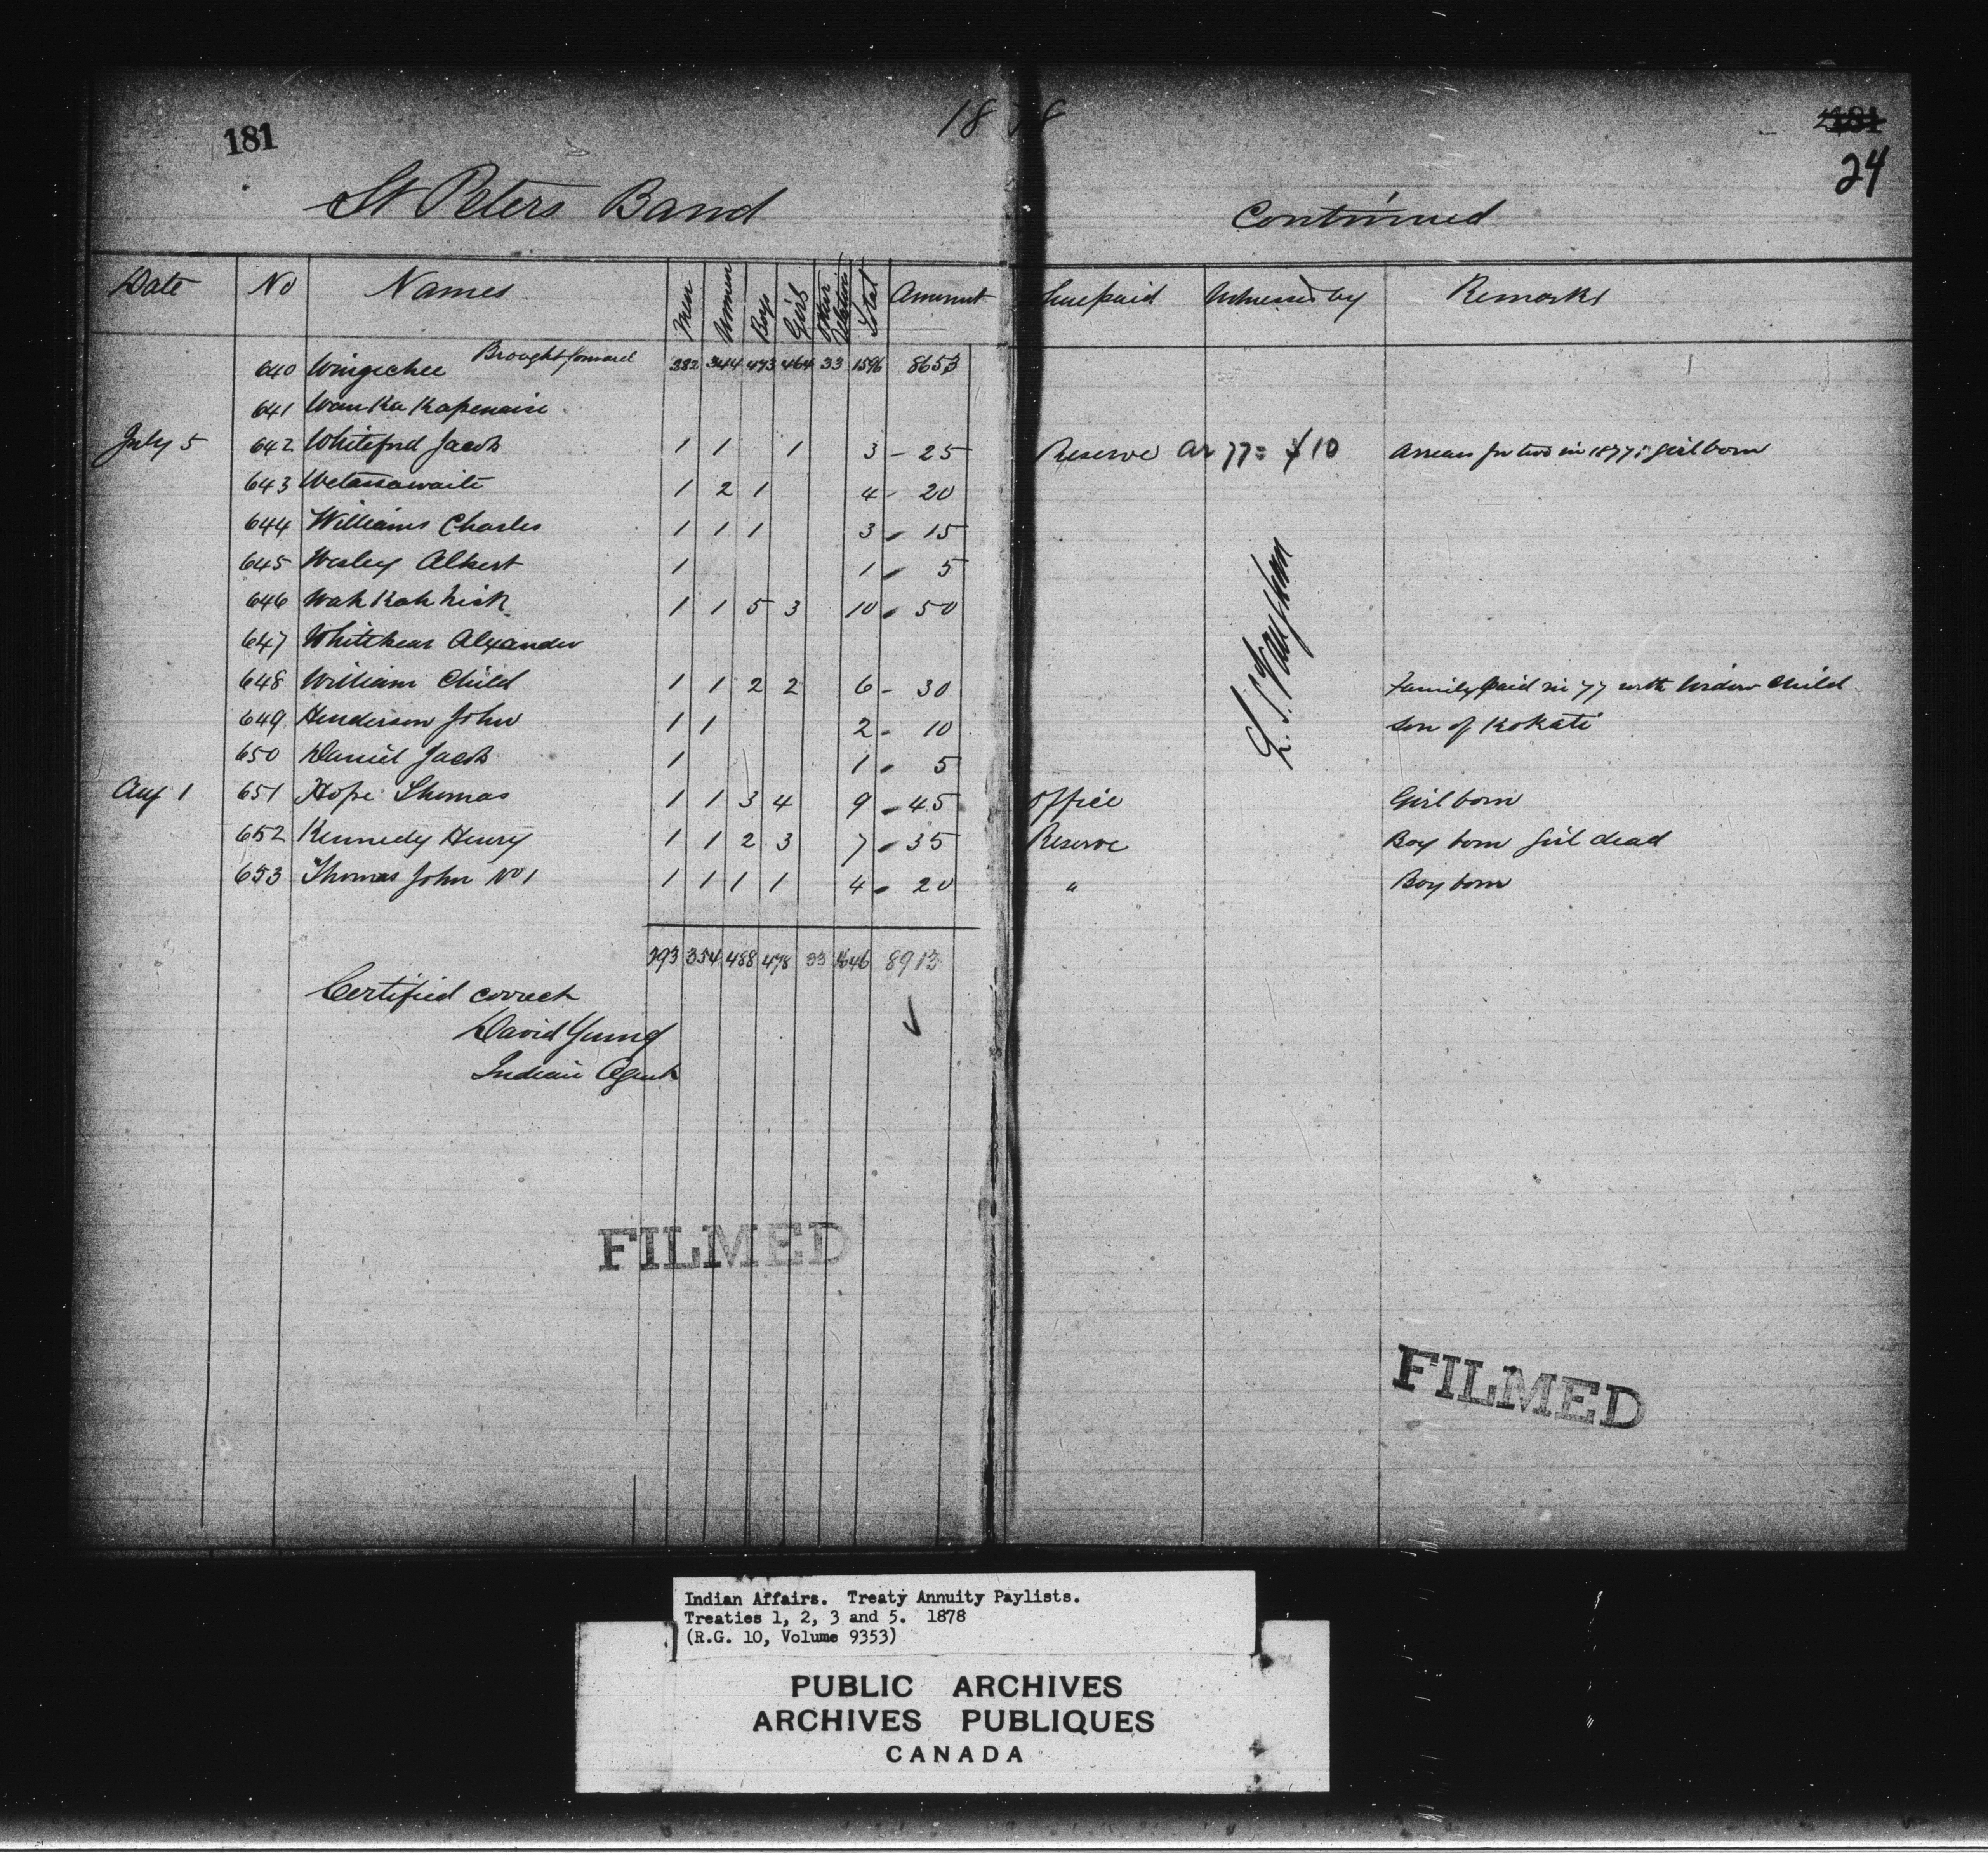 1878
181
24
St Peters Band Continued
Date No Names Men Women Boys Girls Other Relations Total Amount Where paid Witnessed by Remarks
640 Wingechee Brought forward 382 344 473 464 33 1596 8653
641 Wau Ka Kapenaise
July 5 642 Whiteford Jacob 1 1 1 3 - 25 Reserve ar 77 = $10 Arrears for two in 1877: girl born
643 Wetassawaite 1 2 1 4 - 20
644 Williams Charles 1 1 1 3 - 15
645 Wesley Albert 1 1 - 5
646 Wah Kah kick 1 1 5 3 10 - 50
647 Whitebear Alexander
648 William Child 1 1 2 2 6 - 30 Family paid in 77 with Widow Child
649 Henderson John 1 1 2 - 10 Son of Kokati
650 Daniel Jacob 1 1 - 5
Aug 1 651 Hope Thomas 1 1 3 4 9 - 45 Office Girl born
652 Kennedy Henry 1 1 2 3 7 - 35 Reserve Boy born girl dead
653 Thomas John No 1 1 1 1 1 4 - 20 " Boy born
393 354 488 478 33 1646 8913
Certified correct
David Young
Indian Agent
FILMED
FILMED
Indian Affairs. Treaty Annuity Paylists.
Treaties 1, 2, 3 and 5. 1878
(R.G. 10, Volume 9353)
PUBLIC ARCHIVES
ARCHIVES PUBLIQUES
CANADA